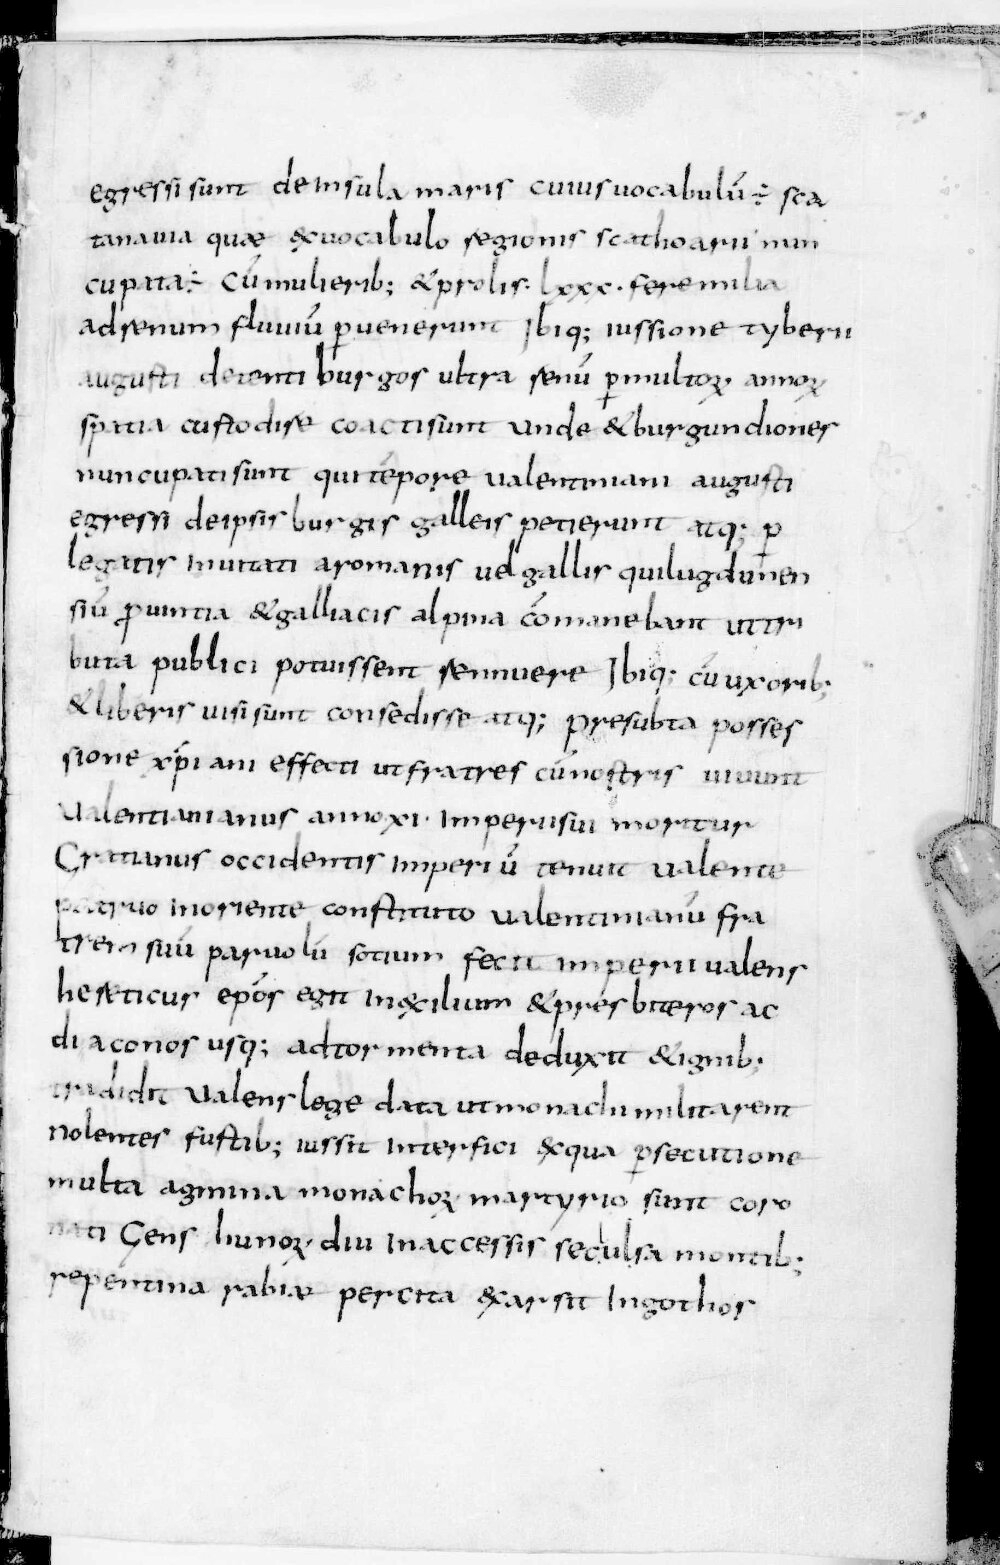 egressi sunt de insula maris cuius vocabulū ÷ sca
tanavia quae & vocabulo regionis scathoarii nun
cupata ÷ Cū mulierib; & prolis · lxxx · fere milia
ad renum fluviū puenerunt Ibiq; iussione tyberii
augusti deienti burgos ultra renū p multoꝝ annoꝝ
spatia custodire coacti sunt unde & burgundiones
nuncupati sunt qui tēpore valentiniani augusti
egressi de ipsis burgis galleis petierunt atq; p
legatis invitati a romanis vel gallis qui lugdunen
siū pvintia & galliacis alpina cōmanebant ut tri
buta publici potuissent rennuere Ibiq; cū uxorib;
& liberis visi sunt consedisse atq; pre subta posses
sione xp̄iani effecti ut fratres cū nostris vivunt
Valentianianus anno xi · imperii sui moritur
Gratianus occidentis imperiū tenuit valente
patruo in oriente constituto valentinianū fra
trem suū parvolū sotium fecit imperii valens
hereticus ep̄os egit in exilium & presbiteros ac
diaconos usq; ad tormenta deduxit & ignib;
tradidit Valens lege data ut monachi militarent
nolentes fustib; iussit interfici ex qua psecutione
multa agmina monachoꝝ martyrio sunt coro
nati Gens hunoꝝ · diu inaccessis seclusa montib;
repentina rabiae percita exarsit in gothos